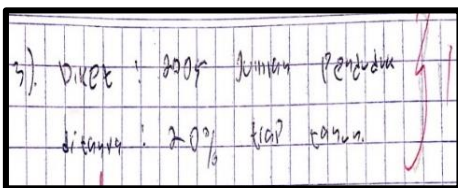 3). Diket : 2005 Jumlah Penduduk
ditanya : 20% tiap tahun.